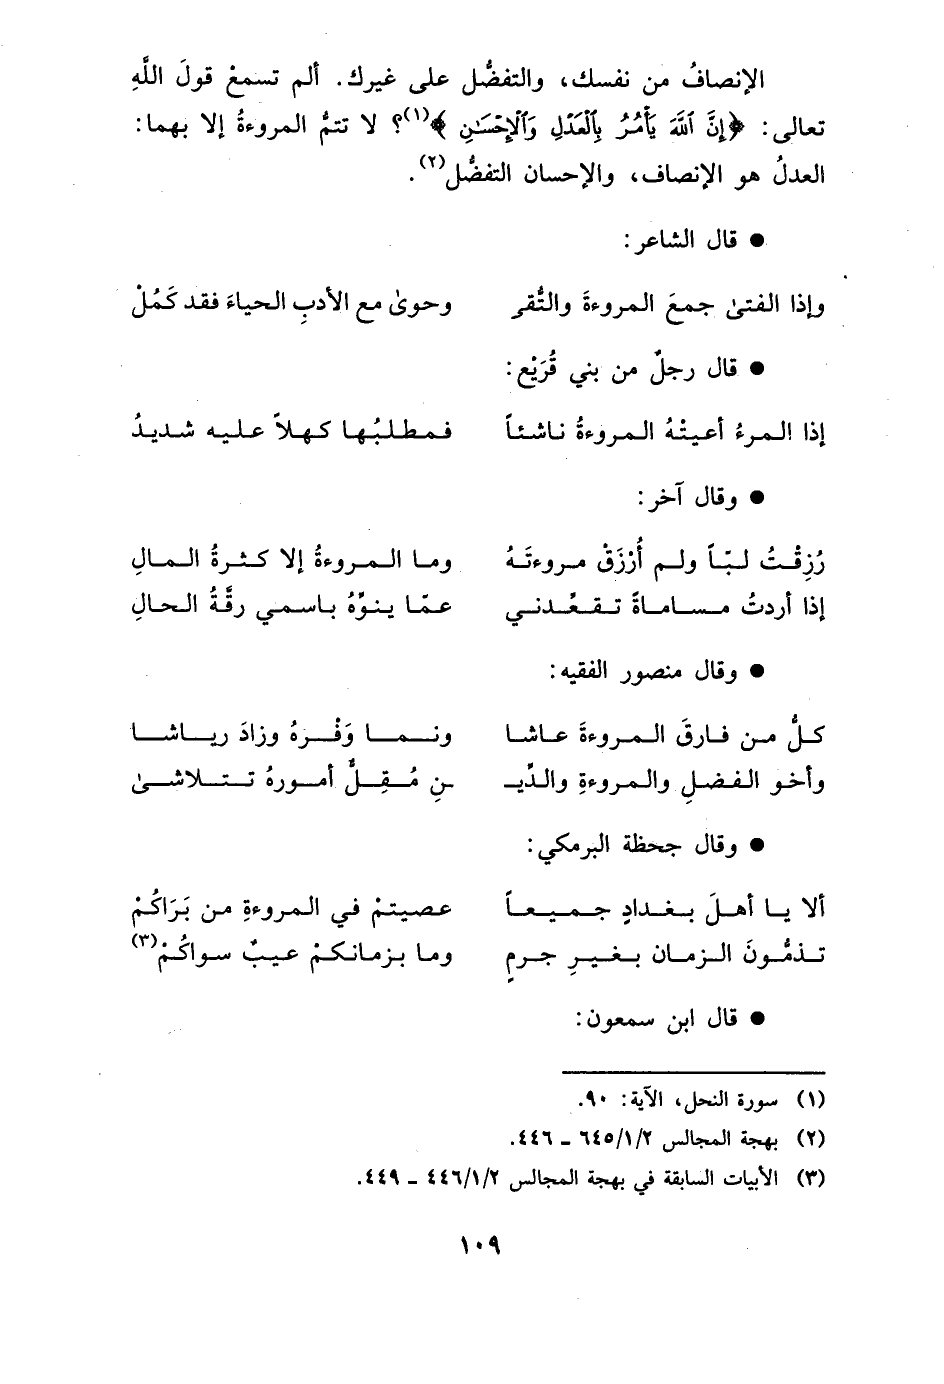 الإنصافُ من نفسك، والتفضُّل على غيرك. ألم تسمعْ قولَ اللَّهِ
تعالى: ﴿إِنَّ ٱللَّهَ يَأْمُرُ بِٱلْعَدْلِ وَٱلْإِحْسَٰنِ﴾(١)؟ لا تتمُّ المروءةُ إلا بهما:
العدلُ هو الإنصاف، والإحسان التفضُّل(٢).
● قال الشاعر:
وإذا الفتىٰ جمعَ المروءةَ والتُّقى وحوىٰ مع الأدبِ الحياءَ فقد كَمُلْ
● قال رجلٌ من بني قُرَيْع:
إذا المرءُ أعيتْهُ المروءةُ ناشئاً فمطلبُها كهلاً عليه شديدُ
● وقال آخر:
رُزِقْتُ لبّاً ولم أُرْزَقْ مروءتَهُ وما المروءةُ إلا كثرةُ المالِ
إذا أردتُ مساماةً تقعُّدني عمّا ينوِّهُ باسمي رقَّةُ الحالِ
● وقال منصور الفقيه:
كلُّ من فارقَ المروءةَ عاشا ونما وَفْرهُ وزادَ رياشا
وأخو الفضلِ والمروءةِ والدِّيـ ـنِ مُقِلٌّ أمورهُ تتلاشىٰ
● وقال جحظة البرمكي:
ألا يا أهلَ بغدادٍ جميعاً عصيتمْ في المروءةِ من بَرَاكُمْ
تذمُّونَ الزمان بغيرِ جرمٍ وما بزمانكمْ عيبٌ سواكُمْ(٣)
● قال ابن سمعون:
(١) سورة النحل، الآية: ٩٠.
(٢) بهجة المجالس ٦٤٥/١/٢ ـ ٤٤٦.
(٣) الأبيات السابقة في بهجة المجالس ٤٤٦/١/٢ ـ ٤٤٩.
١٠٩